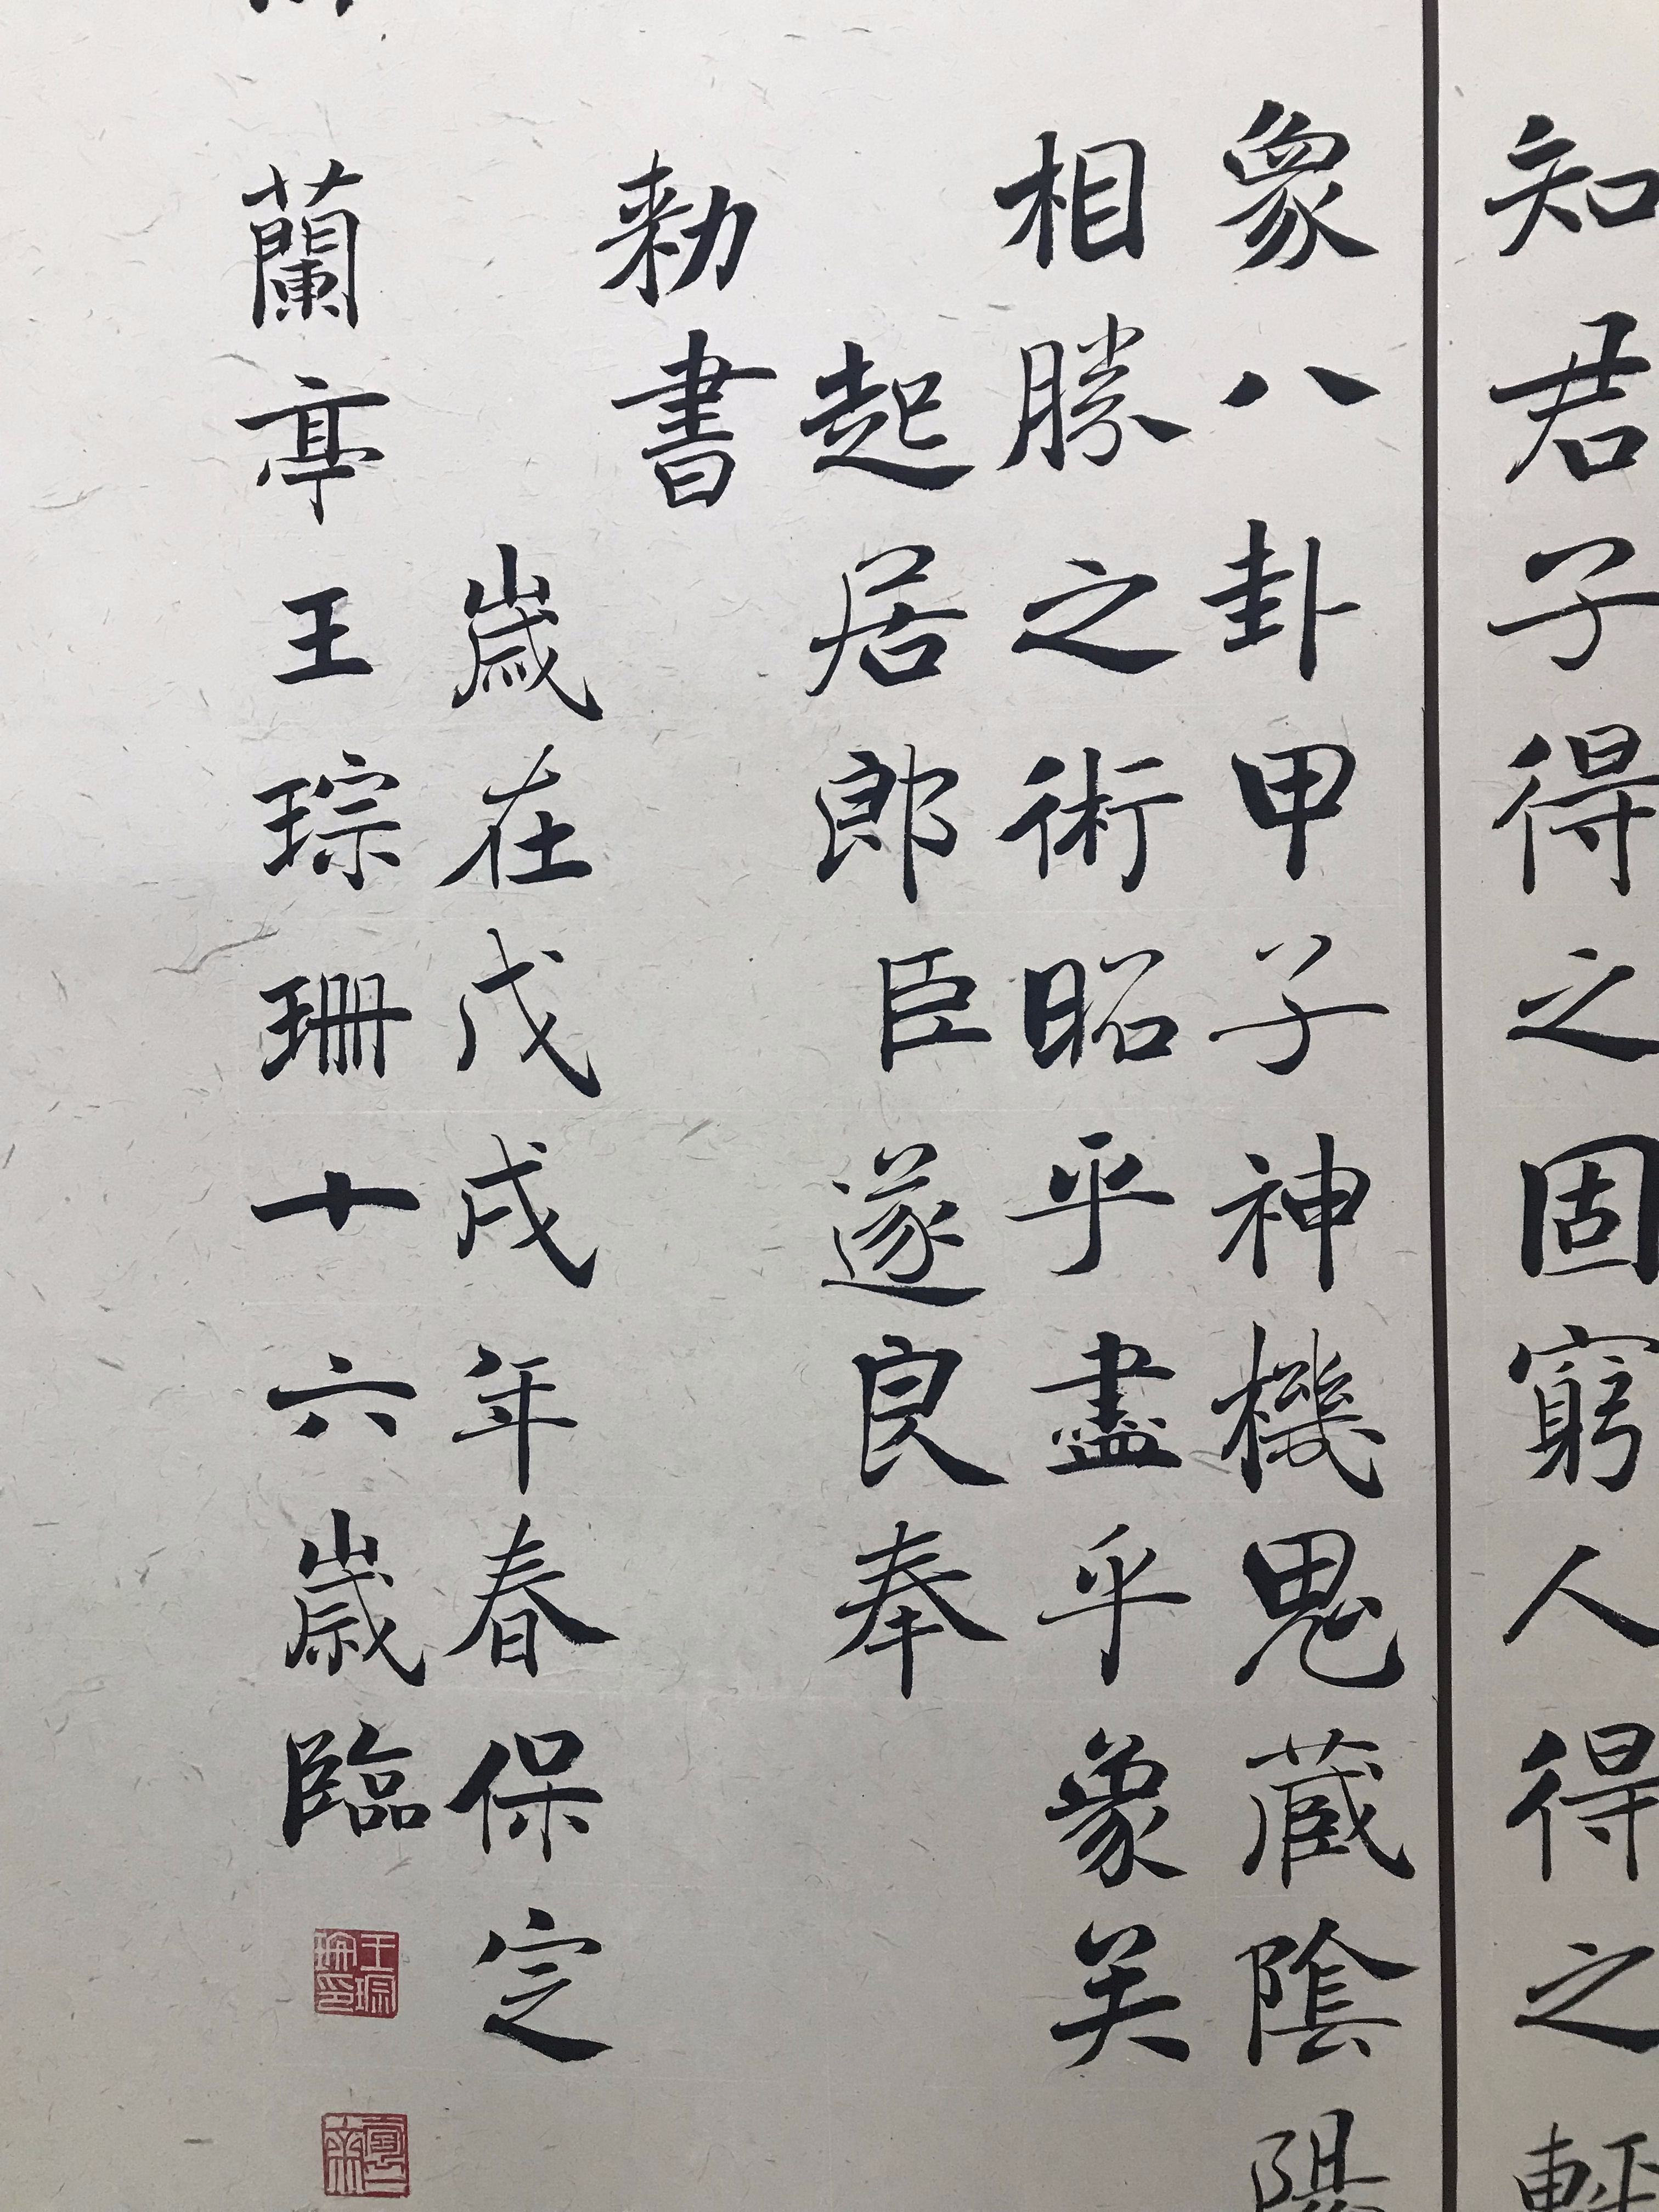 知君子得之固窮人得之輕
象八卦甲子神機鬼藏陰陽
相勝之術昭昭乎盡乎象矣
起居郎臣遂良奉
勅書
歲在戊戌年春保定
蘭亭王琮珊十六歲臨